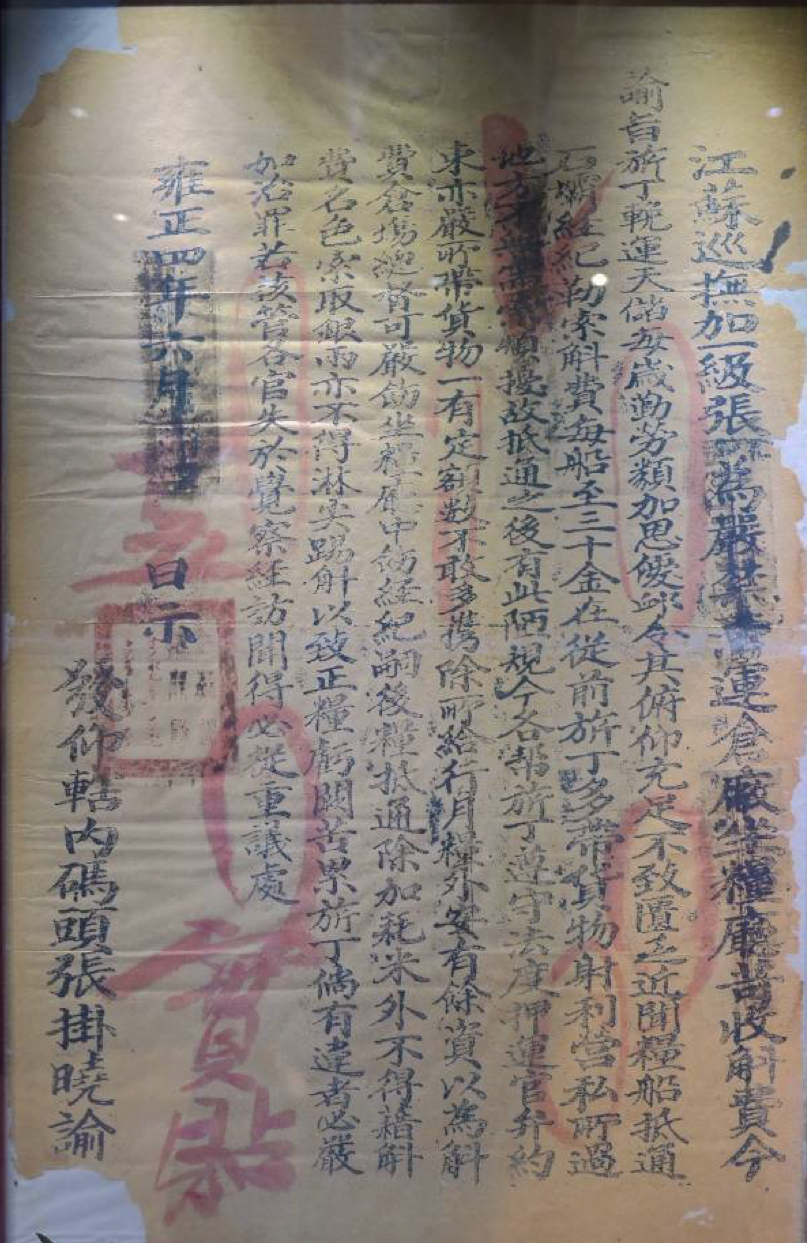 江蘇巡撫加一級張 為嚴禁 運倉廒坐糧廳苛收斛費今
諭旨旂丁輓運天儲每歲勤勞頻加恩優卹令其俯仰充足不致匱乏近聞糧船抵通
石壩經紀勒索斛費每船至三十金在從前旂丁多帶貨物射利營私所過
地方不無需索煩擾故抵通之後有此陋規今各幫旂丁遵守法度押運官弁約
束亦嚴所帶貨物一有定額數不敢多攜除所給行月糧外安有餘資以為斛
費倉塲總督可嚴飭坐糧廳申飭經紀嗣後糧抵通除加耗米外不得藉斛
費名色索取銀兩亦不得淋尖踢斛以致正糧虧闕苦累旂丁倘有違者必嚴
加治罪若該管各官失於覺察經訪聞得必從重議處
雍正四年六月 日示
發仰轄內碼頭張掛曉諭
實貼